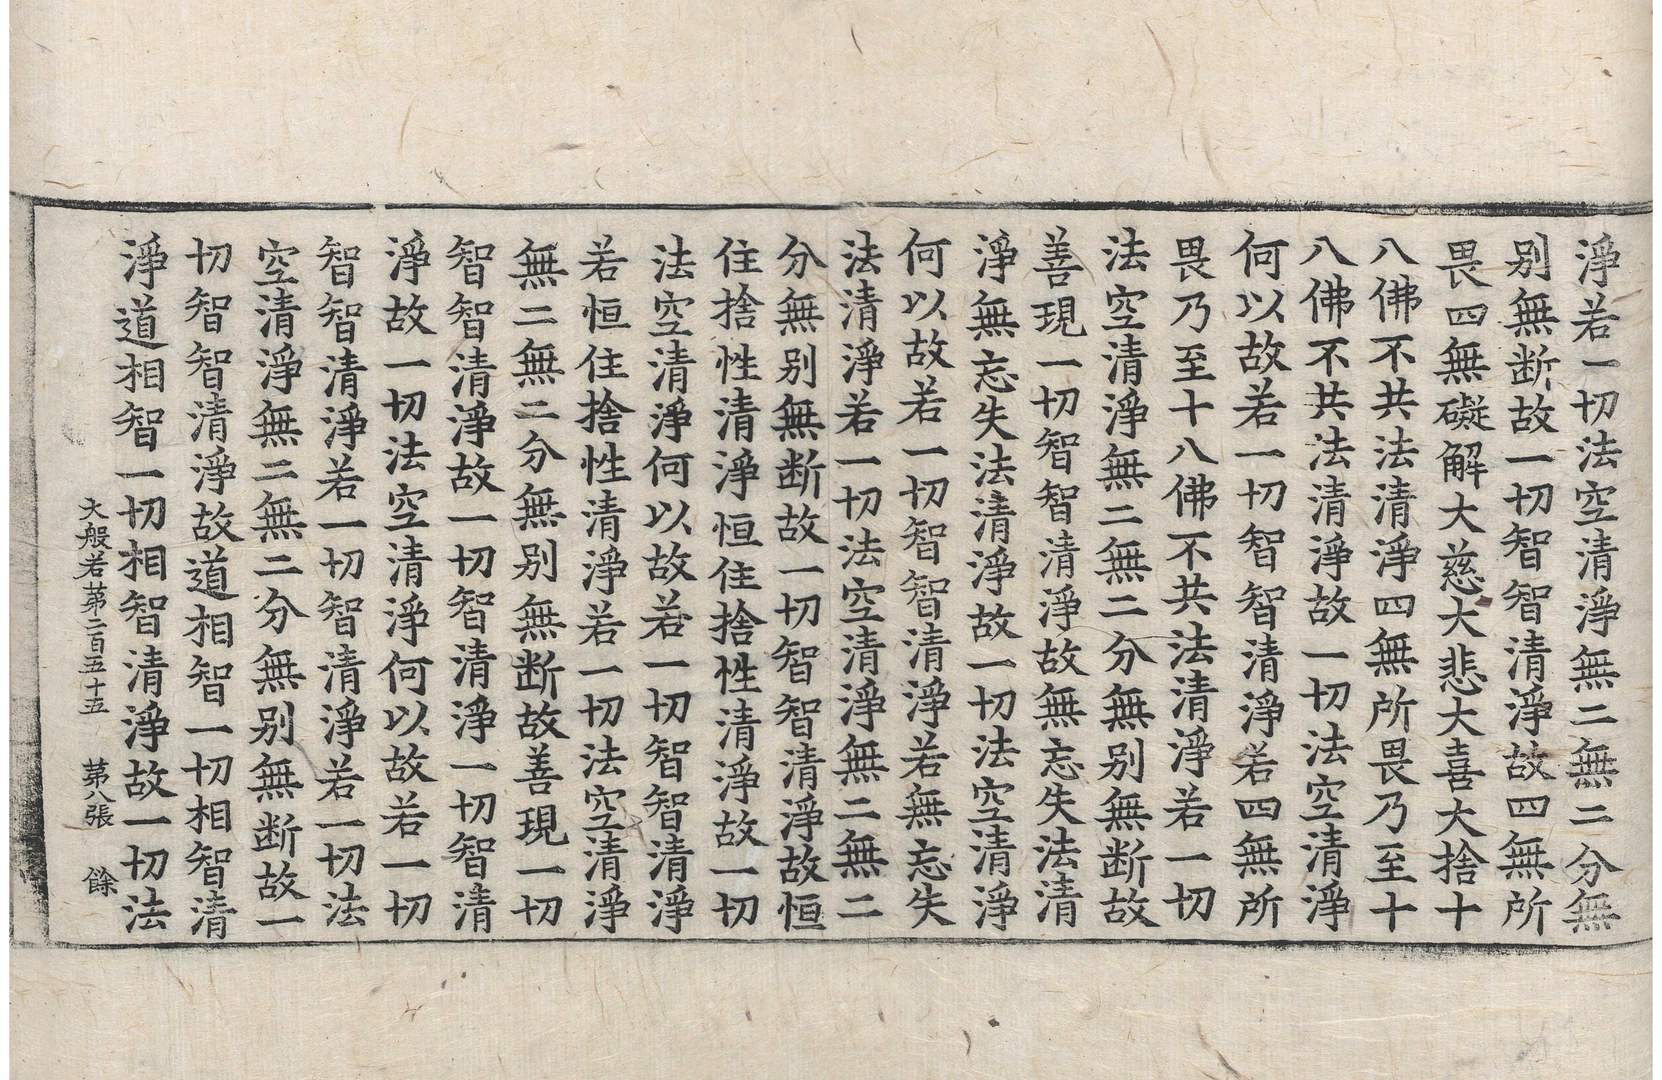 淨若一切法空清淨無二無二分無
别無断故一切智智清淨故四無所
畏四無礙解大慈大悲大喜大捨十
八佛不共法清淨四無所畏乃至十
八佛不共法清淨故一切法空清淨
何以故若一切智智清淨若四無所
畏乃至十八佛不共法清淨若一切
法空清淨無二無二分無别無断故
善現一切智智清淨故無忘失法清
淨無忘失法清淨故一切法空清淨
何以故若一切智智清淨若無忘失
法清淨若一切法空清淨無二無二
分無别無断故一切智智清淨故恒
住捨性清淨恒住捨性清淨故一切
法空清淨何以故若一切智智清淨
若恒住捨性清淨若一切法空清淨
無二無二分無别無断故善現一切
智智清淨故一切智清淨一切智清
淨故一切法空清淨何以故若一切
智智清淨若一切智清淨若一切法
空清淨無二無二分無别無断故一
切智智清淨故道相智一切相智清
淨道相智一切相智清淨故一切法
大般若第二百五十五 第八張 餘